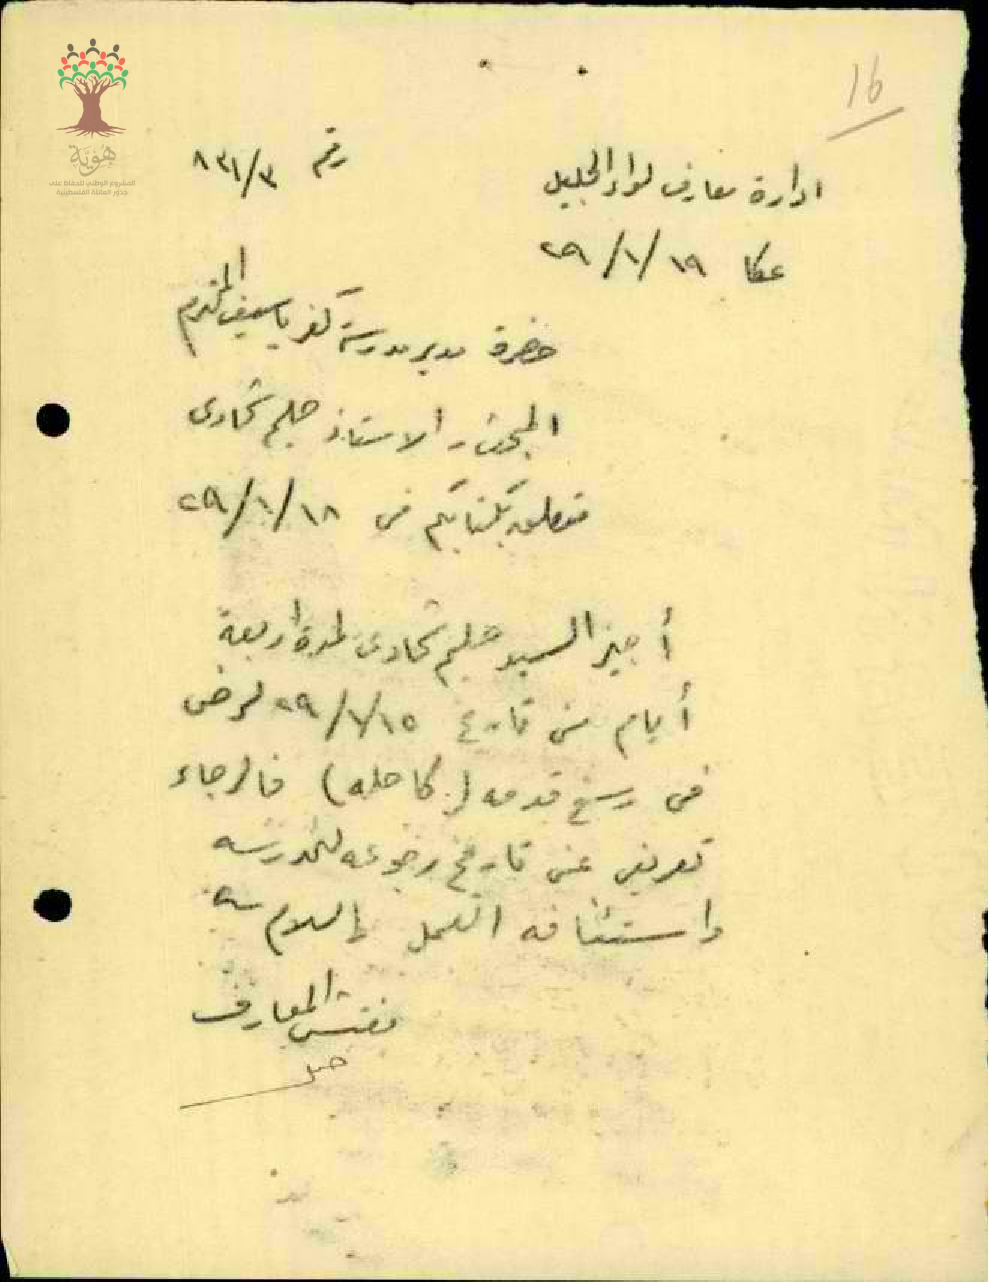 16
هوية
المشروع الوطني للحفاظ على
جذور العائلة الفلسطينية
ادارة معارف لواء الجليل
رقم ٨٣١/٣
عكا ١٩/١/٢٩
حضرة مدير مدرسة كفر ياسيف المحترم
الاستاذ حليم شحادى
متعلق بكتابكم في ١٨/١/٢٩
أجيز السيد حليم شحادى لمدة اربعة
أيام من تاريخ ١٥/١/٢٩ لمرض
في رسغ قدمه (كاحله) فالرجاء
تعريفي عن تاريخ رجوعه للمدرسه
واستئنافه العمل والسلام
مفتش المعارف